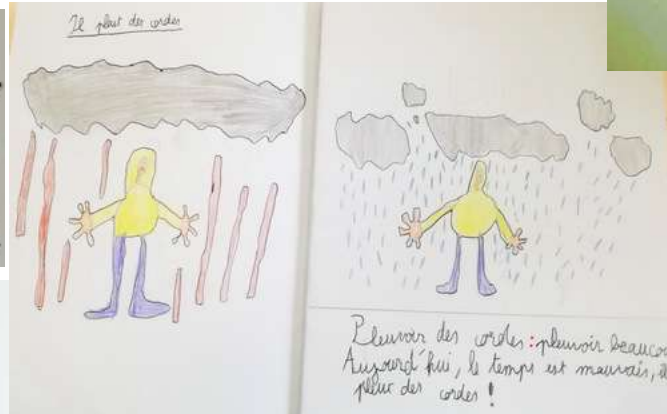 Il pleut des cordes
Pleuvoir des cordes : pleuvoir beaucou
Aujourd'hui, le temps est mauvais, il
pleut des cordes !